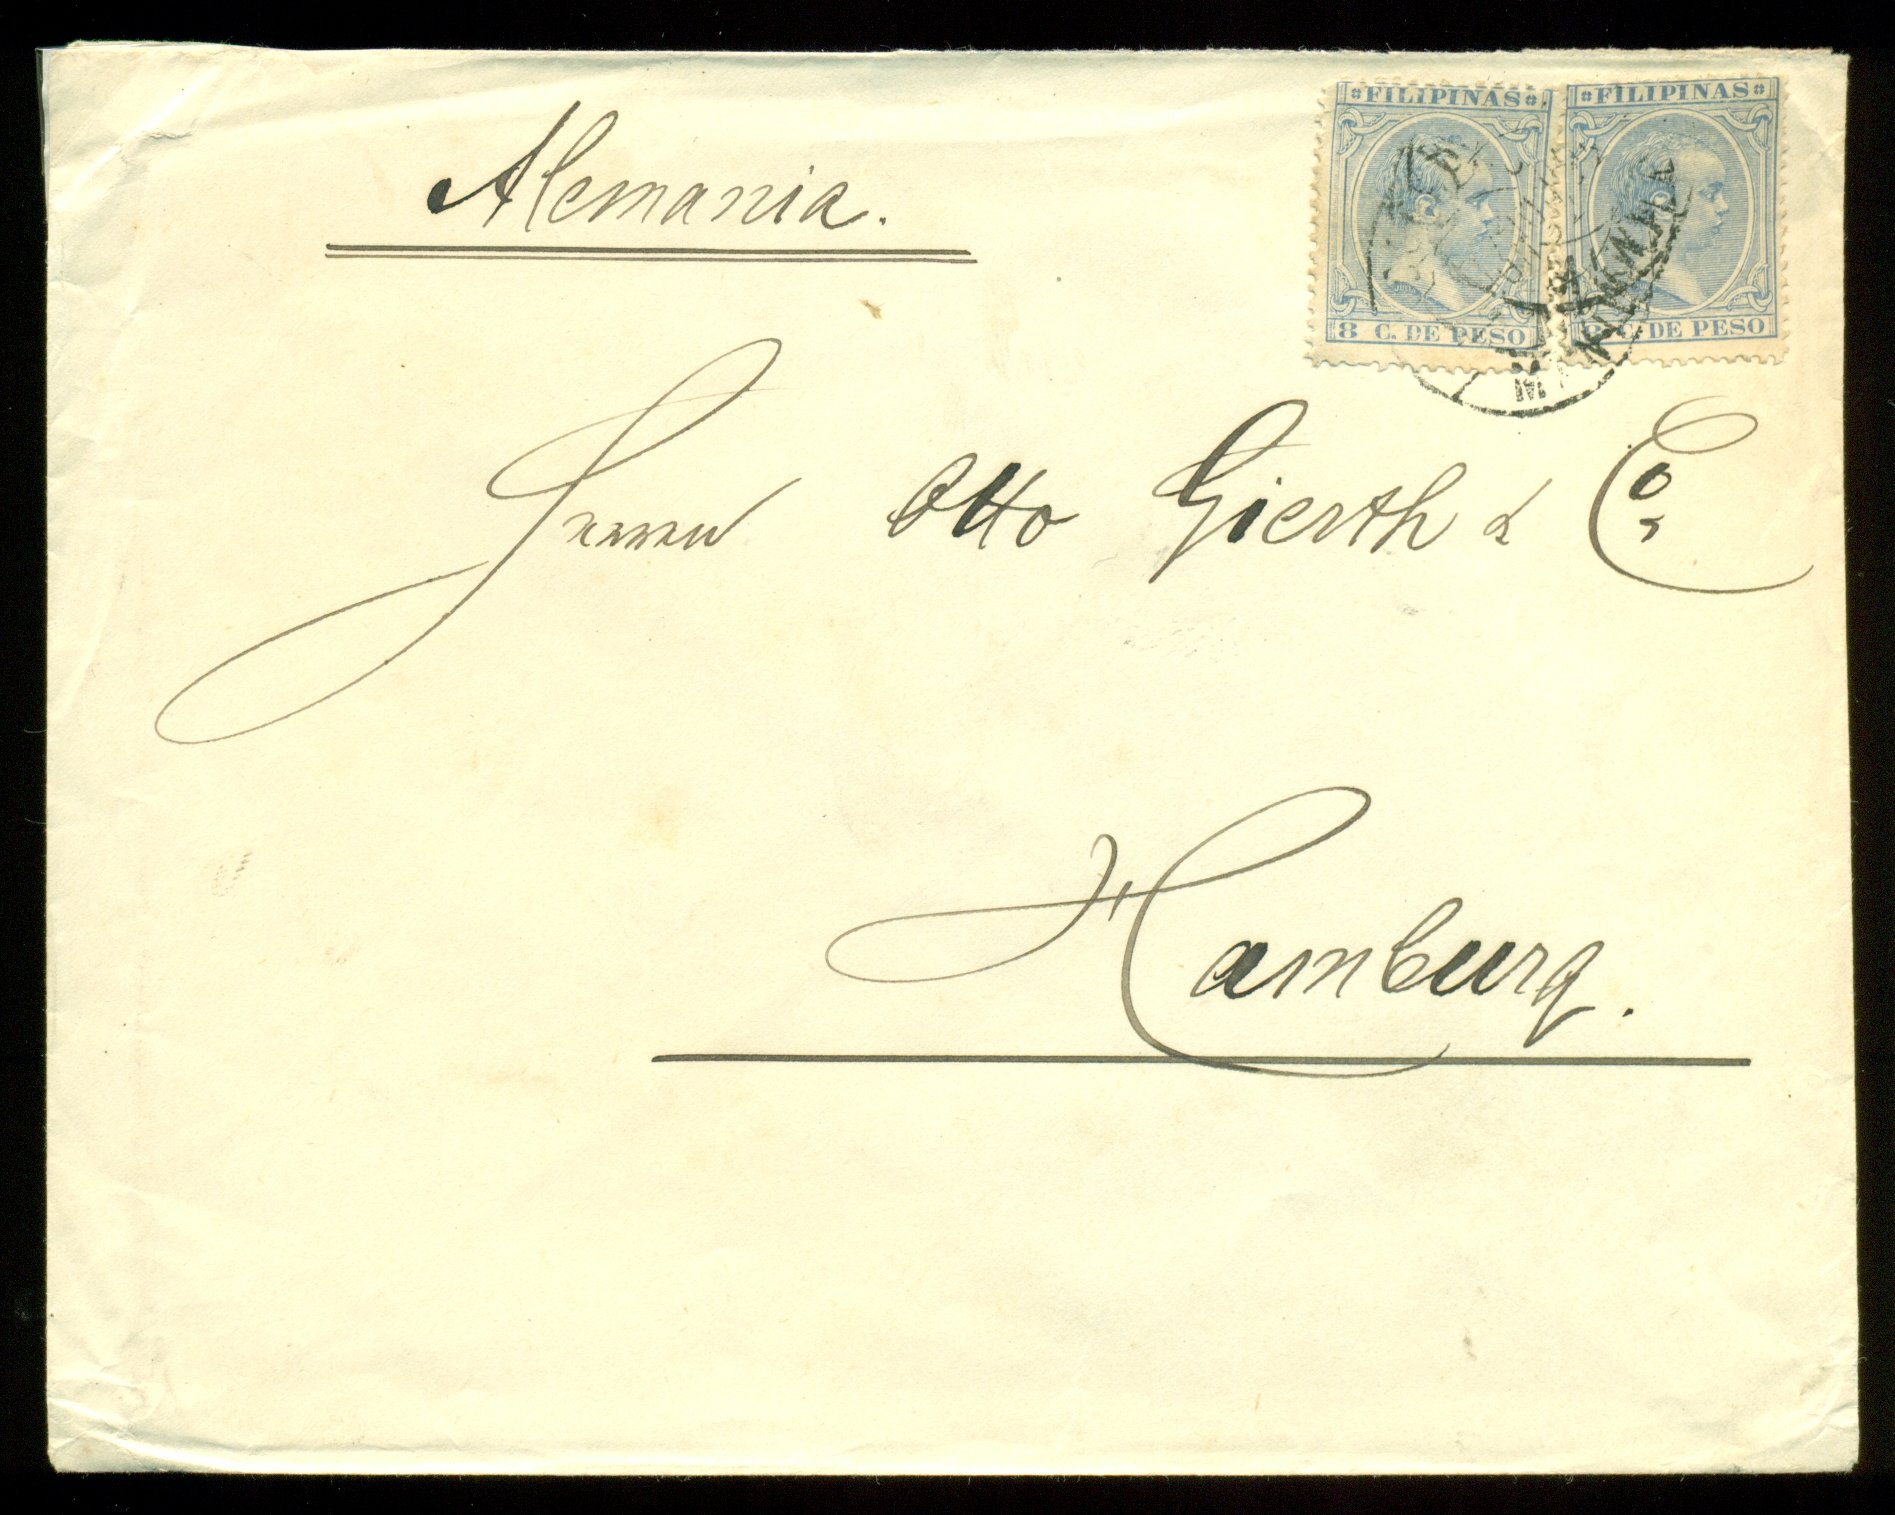 FILIPINAS FILIPINAS
8 C. DE PESO 8 C. DE PESO
MANILA
Alemania.
Herrn Otto Gierth & Co
Hamburg.